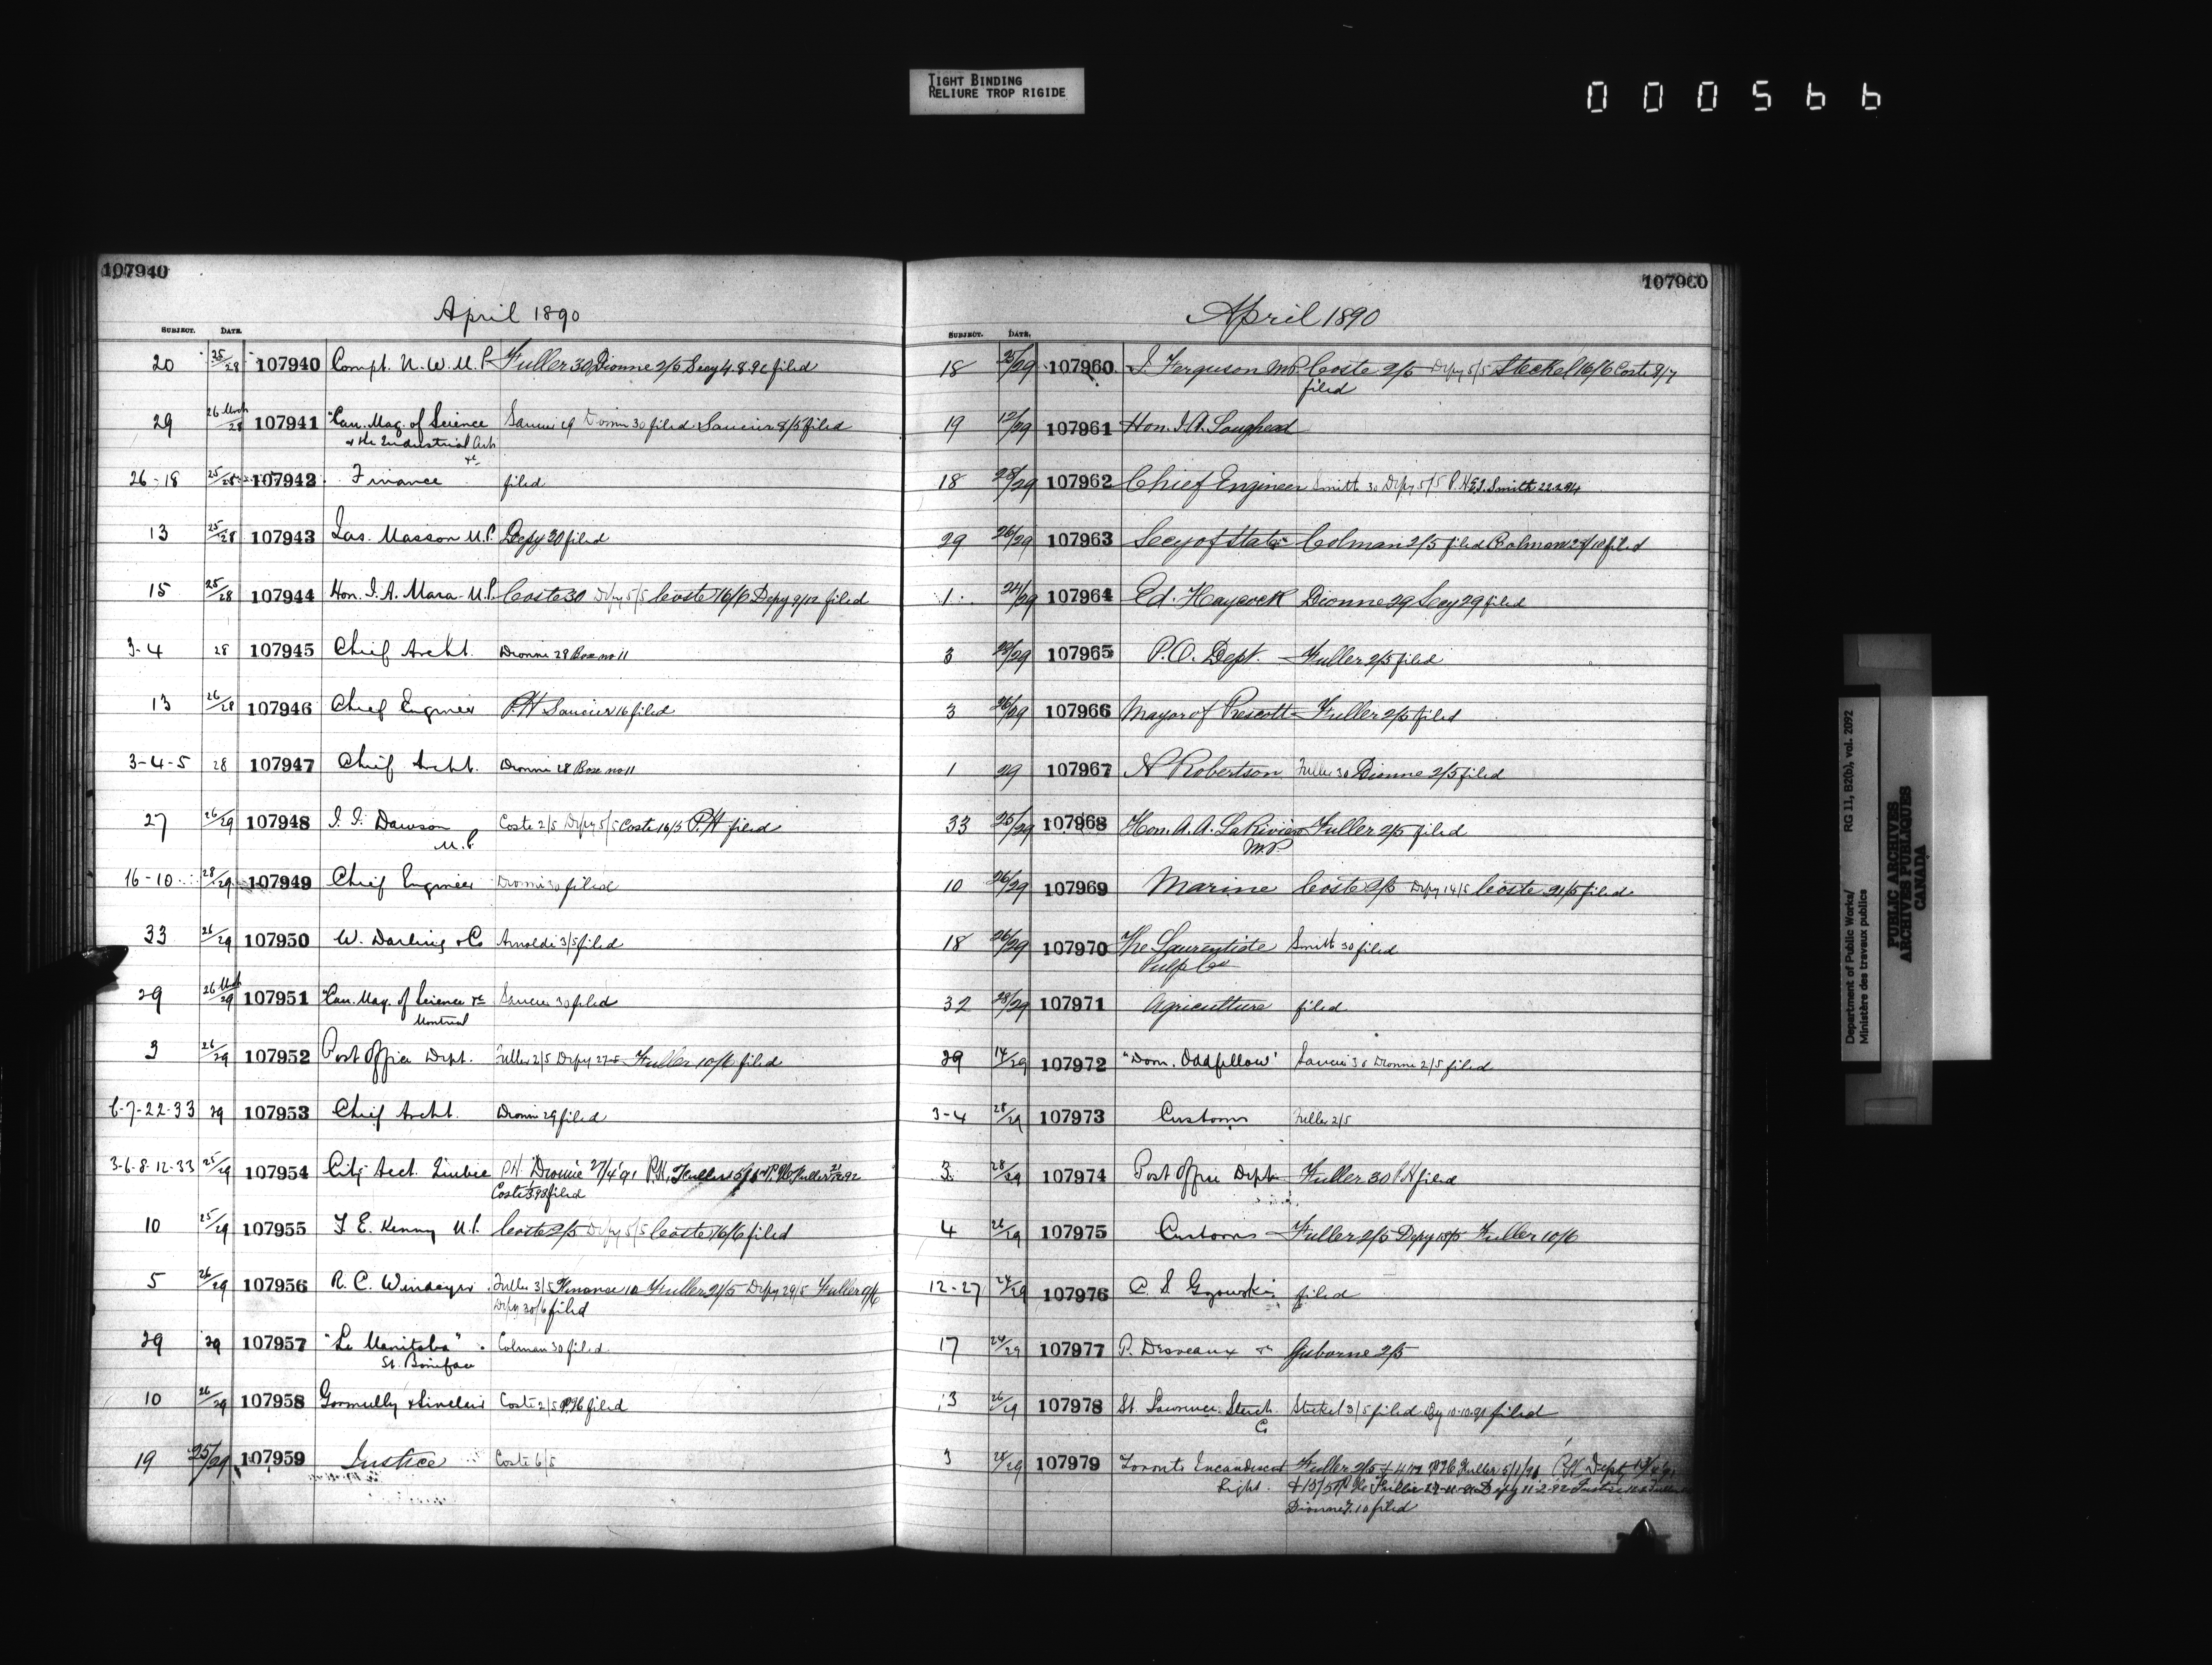 TIGHT BINDING
RELIURE TROP RIGIDE
000566
107940
April 1890
SUBJECT. DATE.
20 25/28 107940 Compt. N. W. M. P. Fuller 30 Dionne 2/5 Secy 4.8.92 filed
29 26 Mch/28 107941 "Can. Mag. of Science Saucier 29 Dionne 30 filed Saucier 8/5 filed
& the Industrial Arts
&c
26-18 25/28 107942 Finance filed
13 25/28 107943 Jas. Masson M.P. Depy 30 filed
15 25/28 107944 Hon. J. A. Mara M.P. Coste 30 Depy 5/5 Coste 16/6 Depy 9/12 filed
3-4 28 107945 Chief Archt. Dionne 28 Box no 11
13 26/28 107946 Chief Engineer P.H Saucier 16 filed
3-4-5 28 107947 Chief Archt. Dionne 28 Box no 11
27 26/29 107948 Dawson Coste 2/5 Depy 5/5 Coste 16/5 P.H filed
M.P.
16-10 28/29 107949 Chief Engineer Dionne 30 filed
33 26/29 107950 W. Darling & Co Arnoldi 3/5 filed
29 26 Mch/29 107951 "Can. Mag. of Science &c Saucier 30 filed
Montreal
3 26/29 107952 Post Office Dept. Fuller 2/5 Depy 27-5 Fuller 10/6 filed
6-7-22-33 29 107953 Chief Archt. Dionne 29 filed
3-6-8-12-33 25/29 107954 City Acct. Quebec P.H. Dionne 27/4/91 P.H. Fuller
Coste filed
10 25/29 107955 T E. Kenny M.P. Coste 2/5 Depy 5/5 Coste 16/6 filed
5 26/29 107956 R. C. Windeyer Fuller 3/5 Finance 10 Fuller 21/5 Depy 29/5 Fuller 9/6
Depy 30/6 filed
29 29 107957 "Le Manitoba" Colman 30 filed
St. Boniface
10 26/29 107958 Gormully & Sinclair Coste 2/5 filed
19 25/29 107959 Justice Coste 6/5
107960
April 1890
SUBJECT. DATE.
18 25/29 107960 J. Ferguson MP. Coste 2/5 Depy 5/5 Steckel 16/6 Coste 8/7
filed
19 12/29 107961 Hon. J. A. Lougheed
18 28/29 107962 Chief Engineer Smith 30 Depy 5/5 P.H E.J. Smith
29 26/29 107963 Secy of State Colman 2/5 filed Colman 28/10 filed
1 24/29 107964 Ed. Haycock Dionne 29 Secy 29 filed
3 28/29 107965 P.O. Dept. Fuller 2/5 filed
3 26/29 107966 Mayor of Prescott Fuller 2/5 filed
1 29 107967 N Robertson Fuller 30 Dionne 2/5 filed
33 25/29 107968 Hon. A. A. LaRiviere Fuller 2/5 filed
M.P.
10 26/29 107969 Marine Coste 2/5 Depy 14/5 Coste 21/5 filed
18 26/29 107970 The Laurentide Smith 30 filed
Pulp Co
32 28/29 107971 Agriculture filed
29 14/29 107972 "Dom. Oddfellow" Saucier 30 Dionne 2/5 filed
3-4 28/29 107973 Customs Fuller 2/5
3 28/29 107974 Post Office Dept Fuller 30 P.H filed
4 26/29 107975 Customs Fuller 2/5 Depy Fuller 10/6
12-27 24/29 107976 C. S. Gzowski filed
17 24/29 107977 P. Desveaux &c Gisborne 2/5
13 26/29 107978 St. Lawrence Starch Steckel 3/5 filed Dy 10.10.91 filed
Co
3 28/29 107979 Toronto Incandescent Fuller 2/5 Fuller 5/1/91 P.H. Depy
Light. Fuller Depy 11-2-92 Justice
Dionne 7.10 filed
Department of Public Works/ RG 11, B2(b), vol. 2092
Ministère des travaux publics
PUBLIC ARCHIVES
ARCHIVES PUBLIQUES
CANADA